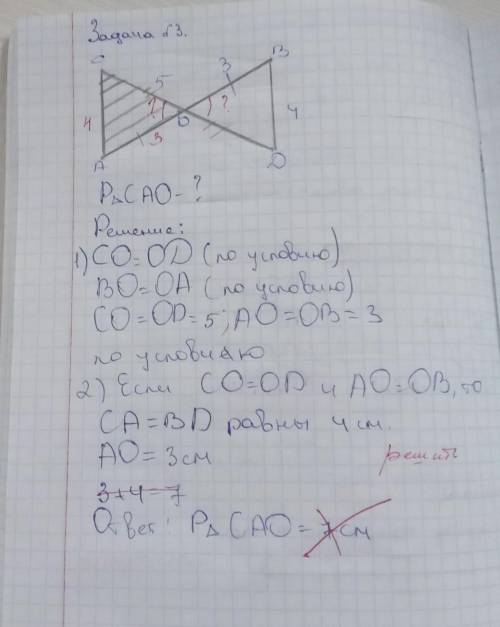 Задача №3.
C
B
5
3
?
?
O
4
4
3
A
D
P△CAO - ?
Решение:
1) CO = OD (по условию)
BO = OA (по условию)
CO = OD = 5; AO = OB = 3
по условию
2) Если CO = OD и AO = OB, то
CA = BD равны 4 см.
AO = 3 см
решить
3+4=7
Ответ: P△ CAO = 7 см